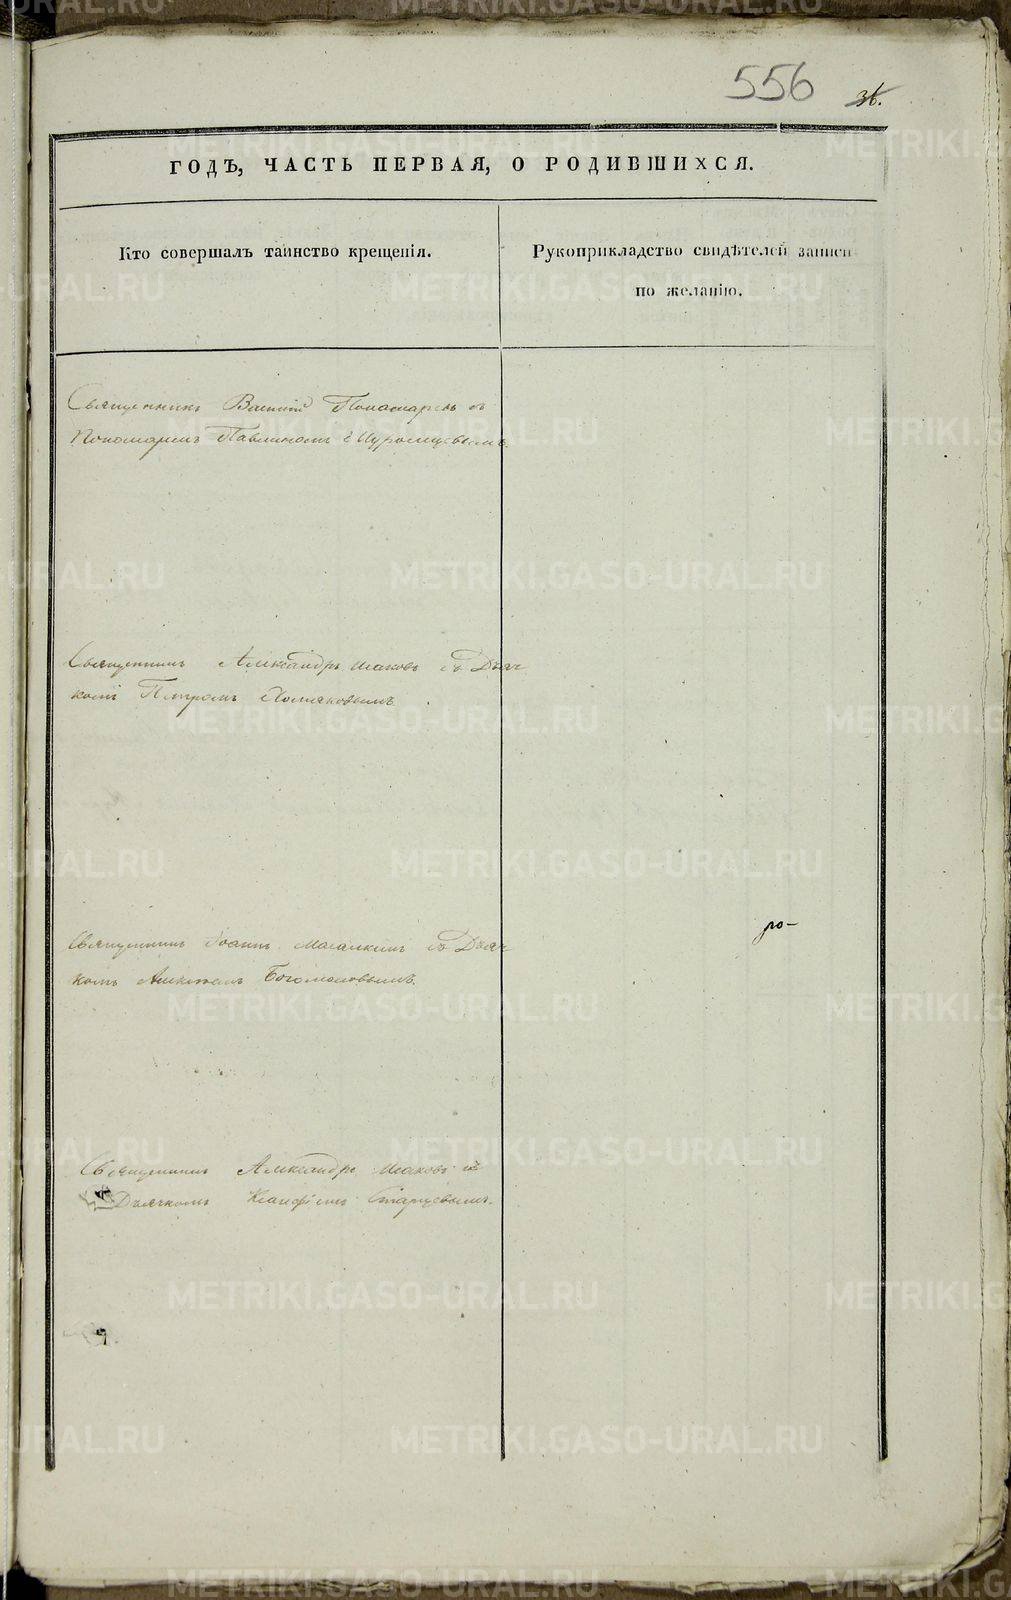 556 36.
ГОДЪ, ЧАСТЬ ПЕРВАЯ, О РОДИВШИХСЯ.
Кто совершалъ таинство крещенія.
Рукоприкладство свидѣтелей записи
по желанію.
Священникъ Василій Пономаревъ съ
Пономаремъ Павлиномъ
Священникъ Александръ съ Дьяч
комъ Петромъ Хомяковымъ
Священникъ Іоаннъ съ Дьяч
комъ Богомоловымъ.
ро-
Священникъ Александръ съ
Дьячкомъ Старцевымъ.
METRIKI.GASO-URAL.RU